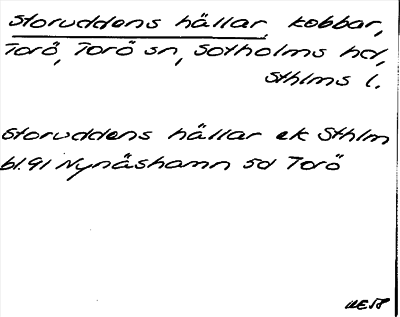 Storuddens hällar, kobbar,
Torö, Torö sn, Sotholms hd,
Sthlms l.
Storuddens hällar ek Sthlm
bl. 91 Nynäshamn sd Torö